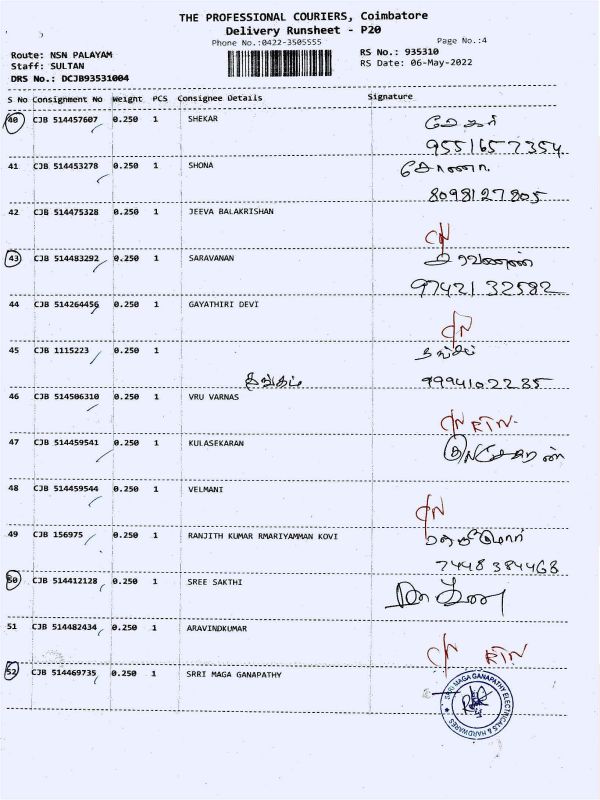 THE PROFESSIONAL COURIERS, Coimbatore
Delivery Runsheet - P20
Phone No.:0422-3505555
Page No.:4
Route: NSN PALAYAM
RS No.: 935310
Staff: SULTAN
RS Date: 06-May-2022
DRS No.: DCJB93531004
S No Consignment No Weight PCS Consignee Details Signature
40 CJB 514457607 0.250 1 SHEKAR சேகர்
9551657354
41 CJB 514453278 0.250 1 SHONA சோனா
8098127805
42 CJB 514475328 0.250 1 JEEVA BALAKRISHAN
C/N
43 CJB 514483292 0.250 1 SARAVANAN சரவணன்
9742132582
44 CJB 514264456 0.250 1 GAYATHIRI DEVI
C/N
45 CJB 1115223 0.250 1
தங்கம் 9994102285
46 CJB 514506310 0.250 1 VRU VARNAS
C/N RTN
47 CJB 514459541 0.250 1 KULASEKARAN குலசேகரன்
48 CJB 514459544 0.250 1 VELMANI
C/N
49 CJB 156975 0.250 1 RANJITH KUMAR RMARIYAMMAN KOVI
7448384468
50 CJB 514412128 0.250 1 SREE SAKTHI
51 CJB 514482434 0.250 1 ARAVINDKUMAR
C/N RTN
52 CJB 514469735 0.250 1 SRRI MAGA GANAPATHY
SRRI MAGA GANAPATHY ELECTRICALS & HARDWARES